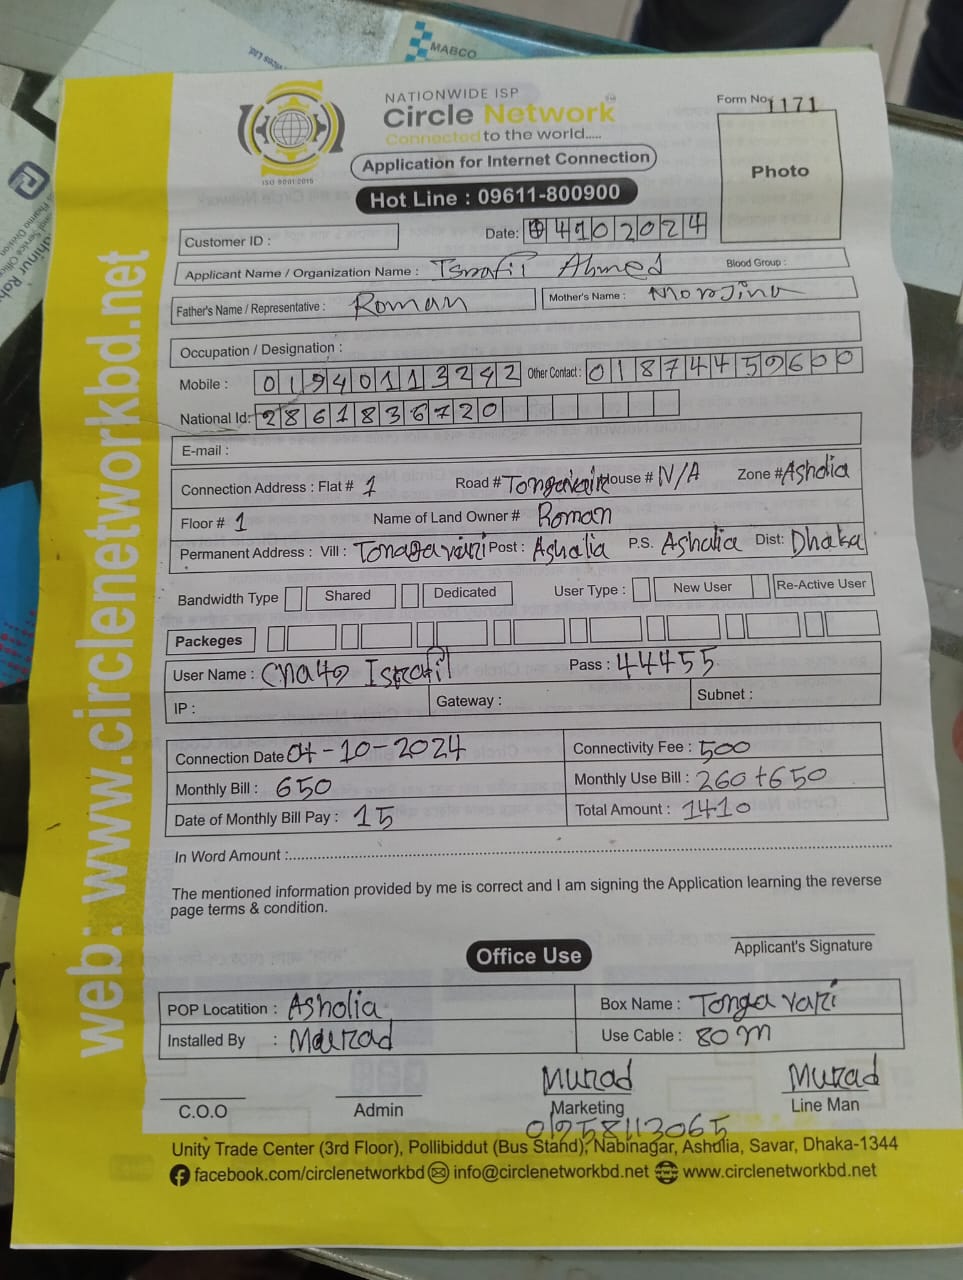 MABCO
NATIONWIDE ISP
Circle Network
Connected to the world.....
ISO 9001:2015
Application for Internet Connection
Hot Line : 09611-800900
Form No. 1171
Photo
Customer ID :
Date: 04102024
Applicant Name / Organization Name : Israfil Ahmed Blood Group :
Father's Name / Representative : Roman Mother's Name : Morjina
Occupation / Designation :
Mobile : 01940113242 Other Contact : 01874459600
National Id: 2861836720
E-mail :
Connection Address : Flat # 1 Road # House # N/A Zone # Asholia
Floor # 1 Name of Land Owner # Roman
Permanent Address : Vill : Tongavari Post : Ashalia P.S. Ashalia Dist: Dhaka
Bandwidth Type Shared Dedicated User Type : New User Re-Active User
Packeges
User Name : Israfil Pass : 44455
IP : Gateway : Subnet :
Connection Date 04-10-2024 Connectivity Fee : 500
Monthly Bill : 650 Monthly Use Bill : 260+650
Date of Monthly Bill Pay : 15 Total Amount : 1410
In Word Amount :
The mentioned information provided by me is correct and I am signing the Application learning the reverse
page terms & condition.
Applicant's Signature
Office Use
POP Locatition : Asholia Box Name : Tonga vari
Installed By : Murad Use Cable : 80m
Murad Murad
C.O.O Admin Marketing Line Man
Unity Trade Center (3rd Floor), Pollibiddut (Bus Stand), Nabinagar, Ashulia, Savar, Dhaka-1344
facebook.com/circlenetworkbd info@circlenetworkbd.net www.circlenetworkbd.net
web: www.circlenetworkbd.net